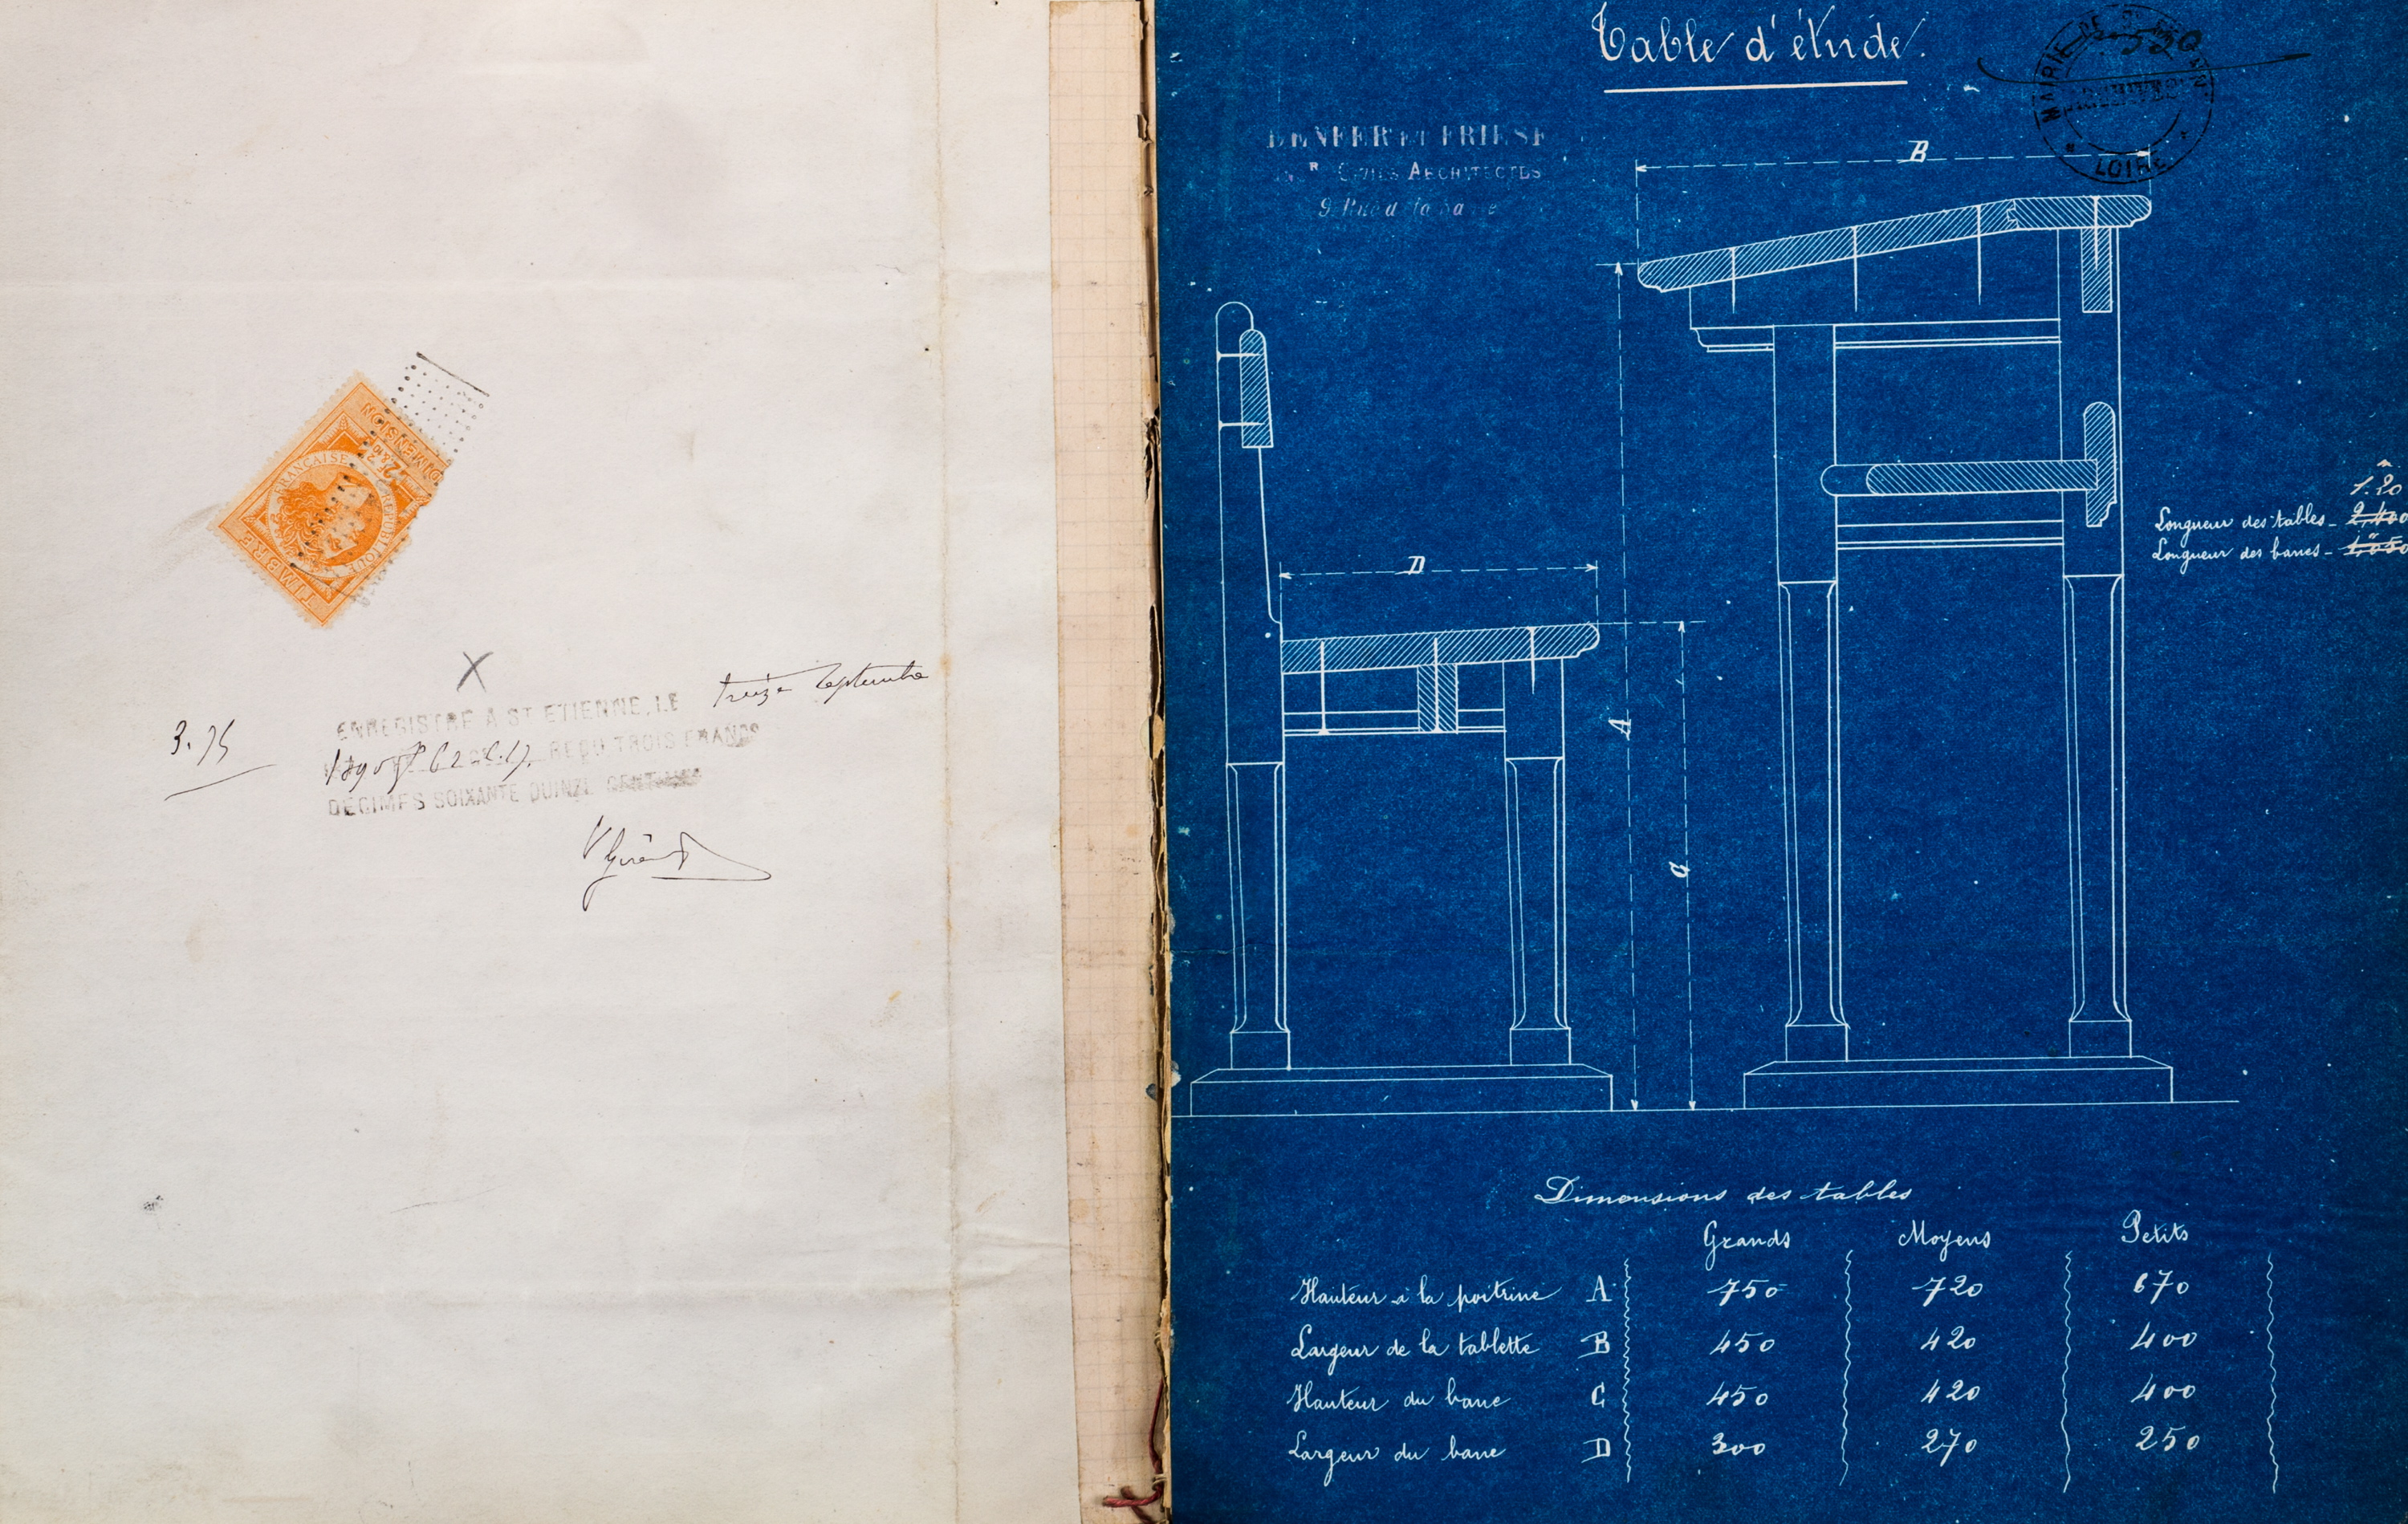 TIMBRE
DIMENSION
RÉPUBLIQUE FRANÇAISE
treize Septembre
ENREGISTRÉ A ST ETIENNE, LE
3.75
REÇU TROIS FRANCS
DÉCIMES SOIXANTE QUINZE CENTIMES
Table d'étude.
MAIRIE DE
LOIRE
DENFER ET FRIESE
CIVILS ARCHITECTES
9. Rue de la
B
D
A
C
1.20
Longueur des tables - 2,400
Longueur des bancs -
Dimensions des tables
Grands Moyens Petits
Hauteur à la poitrine A 750 720 670
Largeur de la tablette B 450 420 400
Hauteur du banc C 450 420 400
Largeur du banc D 300 270 250